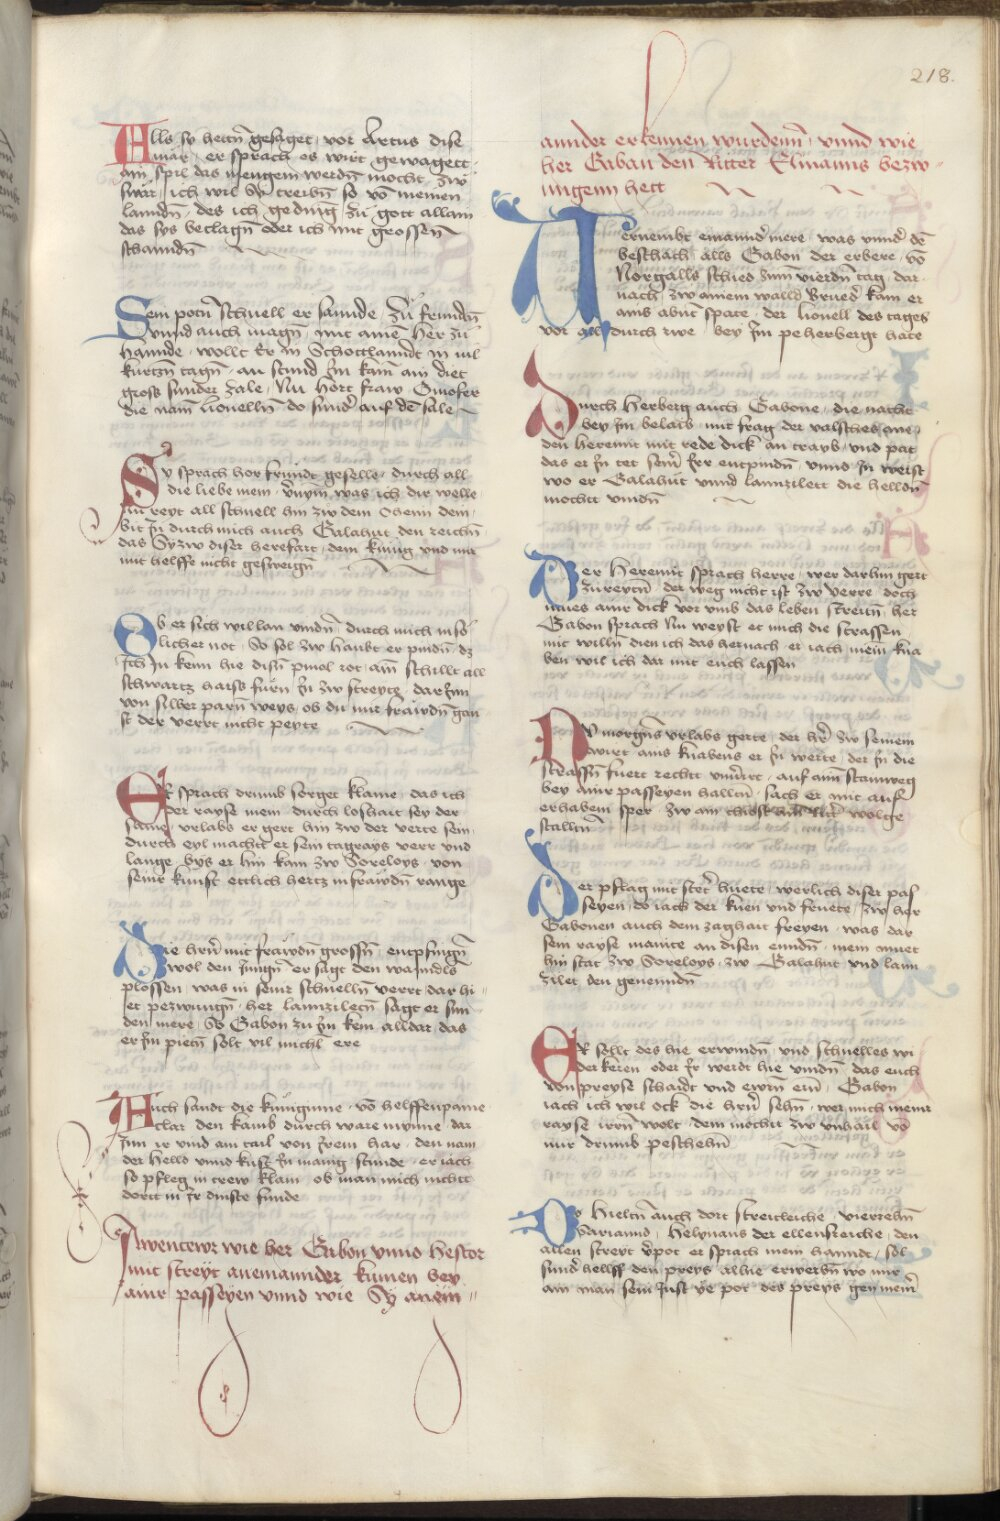 218.
Alls sy hettn gesaget vor Artus dise
mär er sprach es wirt gewagett
ain spil das mengem werdn mocht zw
swär ich wil Sy treibn so vō meinen
lanndn des ich geding zu gott allain
das sys beclagn oder ich mit grossen
schanndn
Sein potn Schnell er sannde zu frundn
vnnd auch magn mit ainē her zu
hannde wollt Er in Schottlanndt in vil
kurtzn tagn an stund Im kam ain diet
gross sunder zale Nu hört fraw Ginofer
die nam lionelln do sundr auf dē sale
Sy sprach hor frundt geselle durch all
die liebe mein vnym was ich dir welle
nu reyt all schnell hin zw dem Ohenn dein
bit In durch mich auch Galahut den reichn
das Syzw diser herefart dem kunig vnd mir
mit helffe nicht gesweign
Ob er sich wil lan vindn durch mich in so
licher not So sol zw haubt er pindn dz
Ich In kenn hie disn pinol rot ain schillt all
schwartz haiss furn In zw streytz dar Inn
von silber parn weys ob du mir fräwdn gan
st der verrt nicht peyte
ER sprach drumb sorget klaine das ich
per rayse mein durch loshait sey der
saine vrlabs er gert hin zw der verte sein
durch eyl macht er sein tagrays verr vnd
lange bys er hin kam zw Soreloys von
seinr kunft ettlich hertz in fräwdn range
Die hrn mit fräwdn grossn entpfingn
wol den Jungn er sagt den wanndls
plossen was in seinr schnelln verrt dar hi
et pezwungn her lannziletn sagt er sun
den mere So Gabon zu Im kem alldar das
er Im pietn solt vil michl ere
Auch sandt die kuniginne vō helffenpaine
clar den kamb durch ware mynne dar
Inn ir vnnd ain tail von Irem har den nam
der Helld vnnd kust In manig stunde er iach
so pfleg in trew klain ob man mich nicht
dortt in Ir dinste funde
Awentewr wie her Gabon vnnd Hestor
mit streyt aneinannder kumen bey
ainr passeyen vnnd wie Sy anein
annder erkennen wurdenn vnnd wie
her Gaban den Ritter Elinanns bezw
ungenn hett
Vernembt emannd mere was vnnd dē
beschach alls Gabon der erbere vō
Norgalls schied zum vierdn tag dar
nach zw ainem walld Brued kam er
ains abnt spate der lionell des tages
vor all durch rwe bey Im peherbergt hate
Durch Herberg auch Gabone die nacht
bey Im belaib mit frag der valsches ane
den heremit mit rede dick an trayb vnd pat
das er In tet seinr Irr entpindn vnnd In weist
wo er Galahut vnnd lannzilett die helldn
mochtt vindn
Der Heremit sprach herre wer darhin gert
zu reytn der weg nicht ist zw verre doch
mues ainr dick vor vmb das leben streitn her
Gabon sprach Nu weyst et mich die strassen
mit willn dien ich das hernach er iach mein kna
ben wil ich dar mit euch lassen
Des morgns vrlabs gerte der hr zw seinem
wirt ains knabens er In werte der In die
strassn fuert recht vnuirt auf ainn stainweg
bey ainr passeyen halltn sach er mit auf
erhabem sper zw ain thiost ainn Ritr wolge
stalltn
Der pflag mit stetr huete werlich diser pas
seyen do iach der kuen vnd fruete zw her
Gabonen auch dem zaghait freyen was dar
sein rayse mainte an disen enndn mein muet
hin stat zw Soreloys zw Galahut vnd lann
zilet den genenndn
Er sollt des hie erwindn vnd schnelles wi
der keren oder Ir werdt hie vindn das euch
von preyse schaidt vnd ewrn ern Gabon
iach ich wil ock die hrn sehn wer mich meinr
rayse irrn wolt dem mocht zw vnhail vō
mir drumb pescheħn
Do Hieltn auch dort streitleiche vierzehn
Sariannd Helynans der ellensreiche den
allen streyt vpot er sprach mein hanndt sol
sund hellff den preys alhie erwerbn wo mir
ain man sein Just ye pot des preys gen meinr